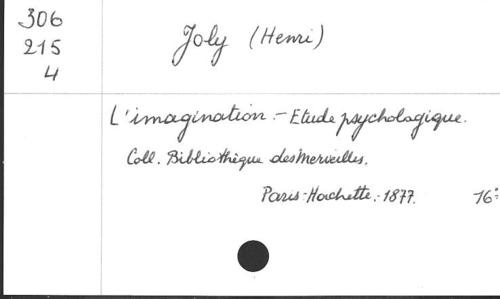 306
215
4
Joly (Henri)
L'imagination.- Etude psychologique.
Coll. Bibliothèque des Merveilles.
Paris-Hachette.-1877. 16°